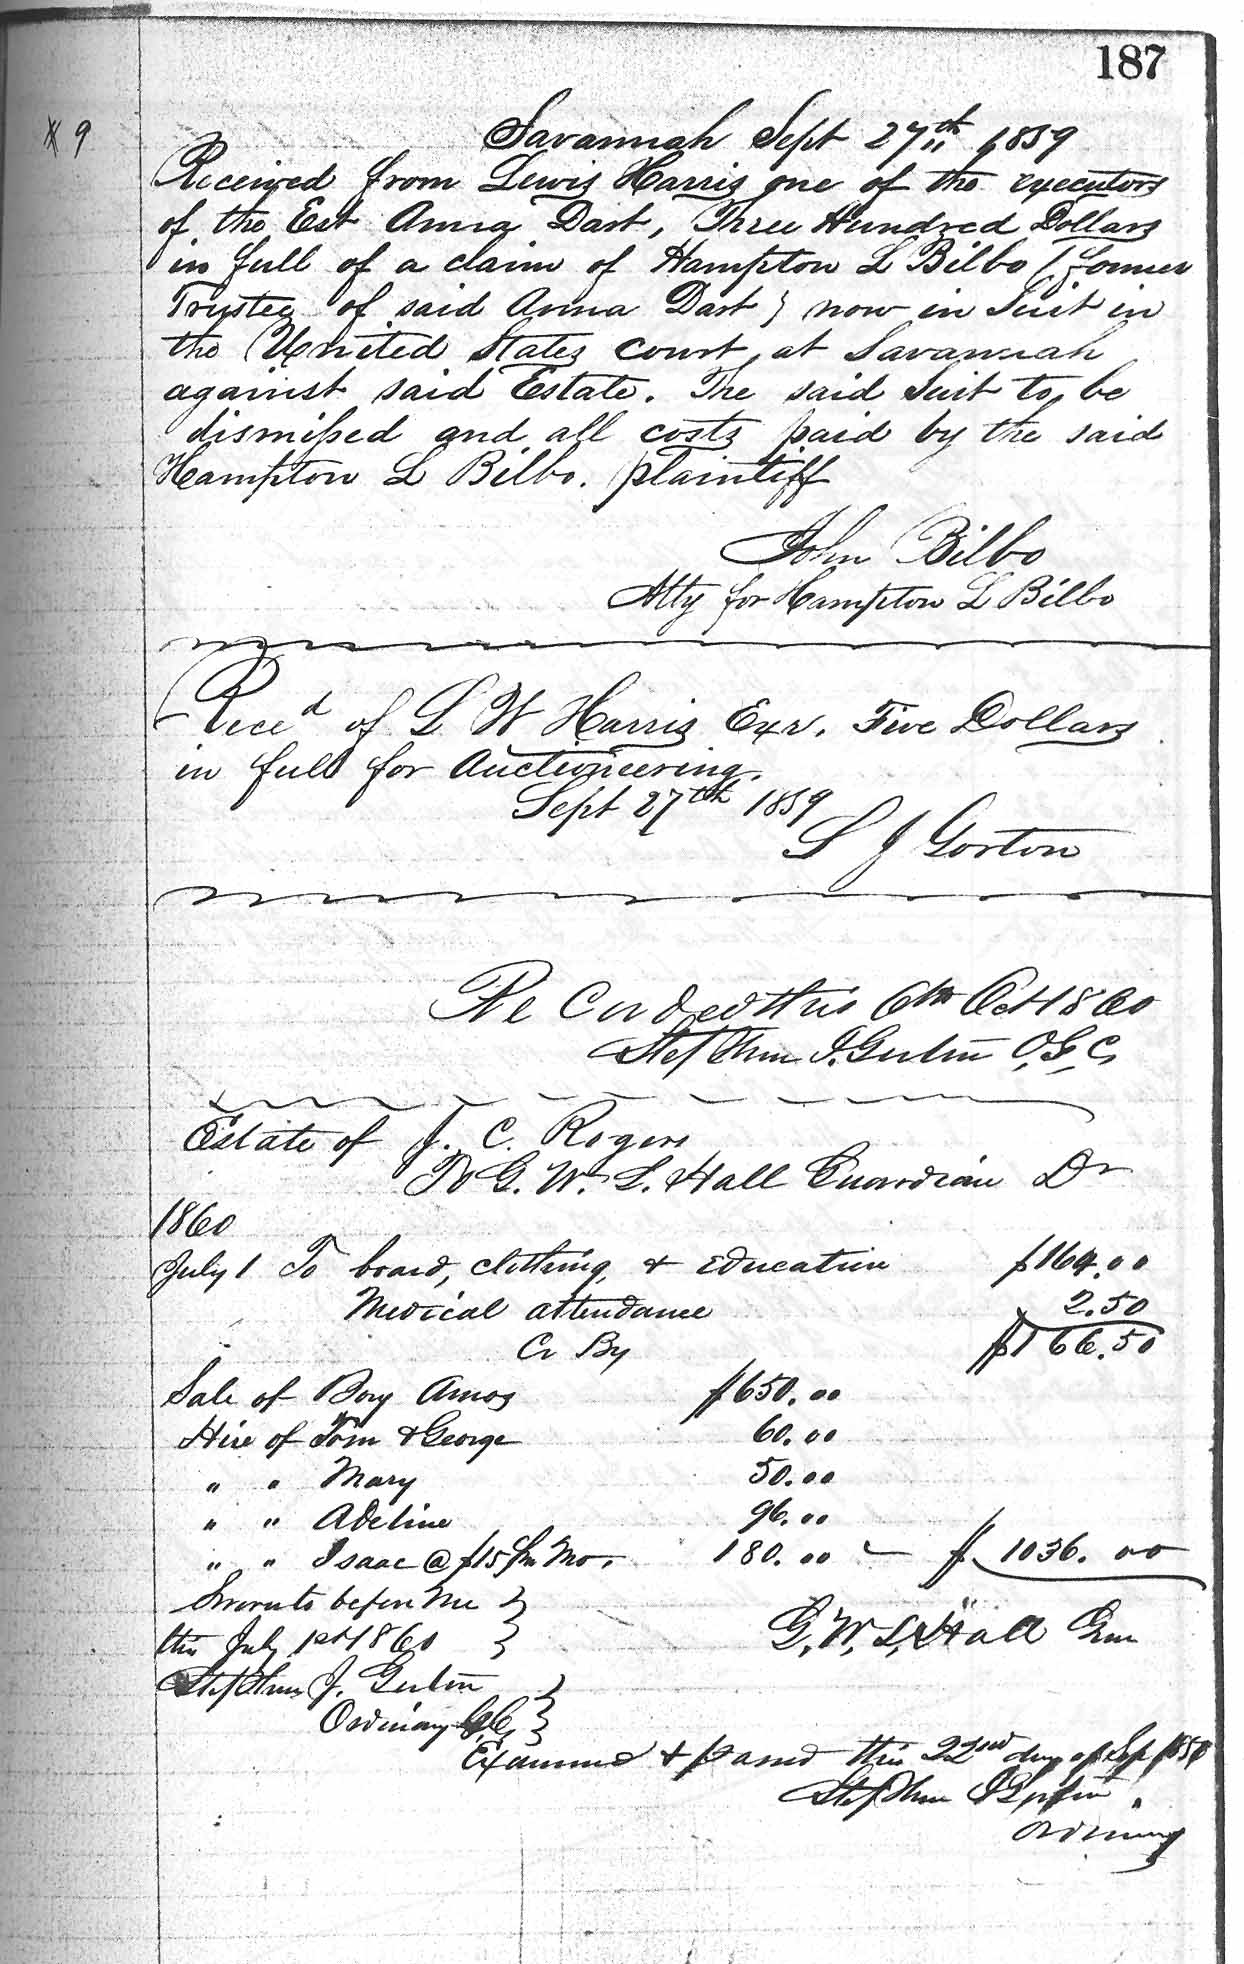 187
# 9
Savannah Sept 27th 1859
Received from Lewis Harris one of the executors
of the Est Anna Dart, Three Hundred Dollars
in full of a claim of Hampton L Bilbo (former
Trustee of said Anna Dart) now in Suit in
the United States court at Savannah
against said Estate. The said Suit to be
dismissed and all costs paid by the said
Hampton L Bilbo. plaintiff
John Bilbo
Atty for Hampton L Bilbo
Reced of L W Harris Exr. Five Dollars
in full for Auctioneering.
Sept 27th 1859
S J Gorton
Recorded this 6th Oct 1860
Stephen J. O.G.C.
Estate of J. C. Rogers
To G. W. L. Hall Guardian Dr
1860
July 1 To board, clothing, & Education $164.00
Medical attendance 2.50
Cr By $166.50
Sale of Boy Amos $650.00
Hire of Tom & George 60.00
" " Mary 50.00
" " Adeline 96.00
" " Isaac @ $15 Pr Mo. 180.00 — $1036.00
Sworn to before me }
this July 1st 1860 } G. W. L. Hall Gun
Stephen J. }
Ordinary G.C. }
Examined & passed this 22nd day of Sep
Stephen J
Ordinary